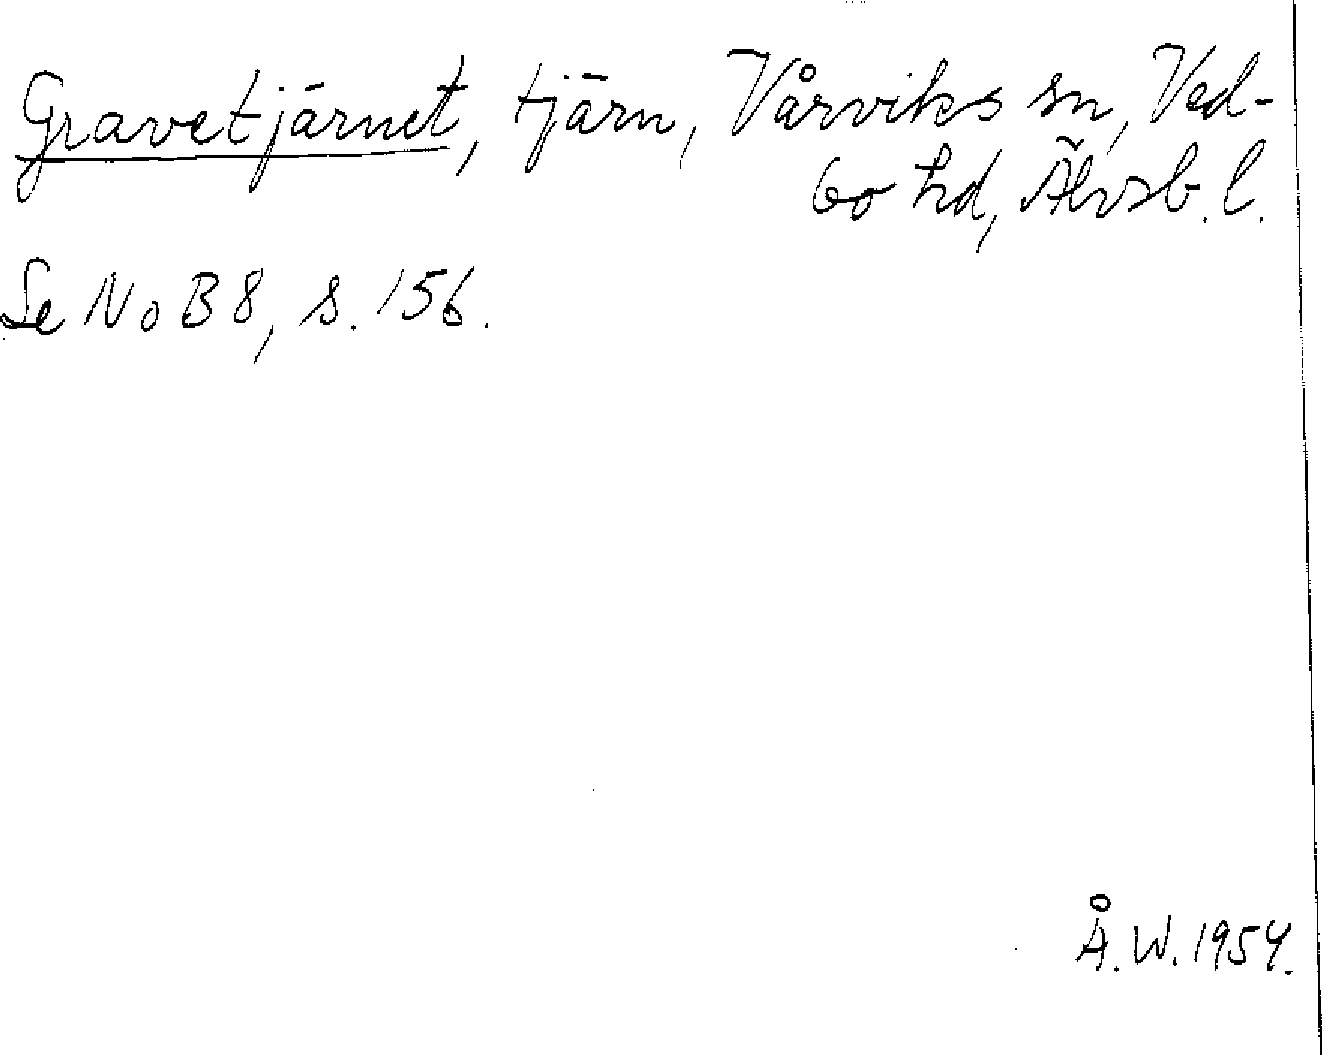 Gravetjärnet, tjärn, Vårviks sn, Ved-
bo hd, Älvsb. l.
Se NoB 8, s. 156.
Å. W. 1954.